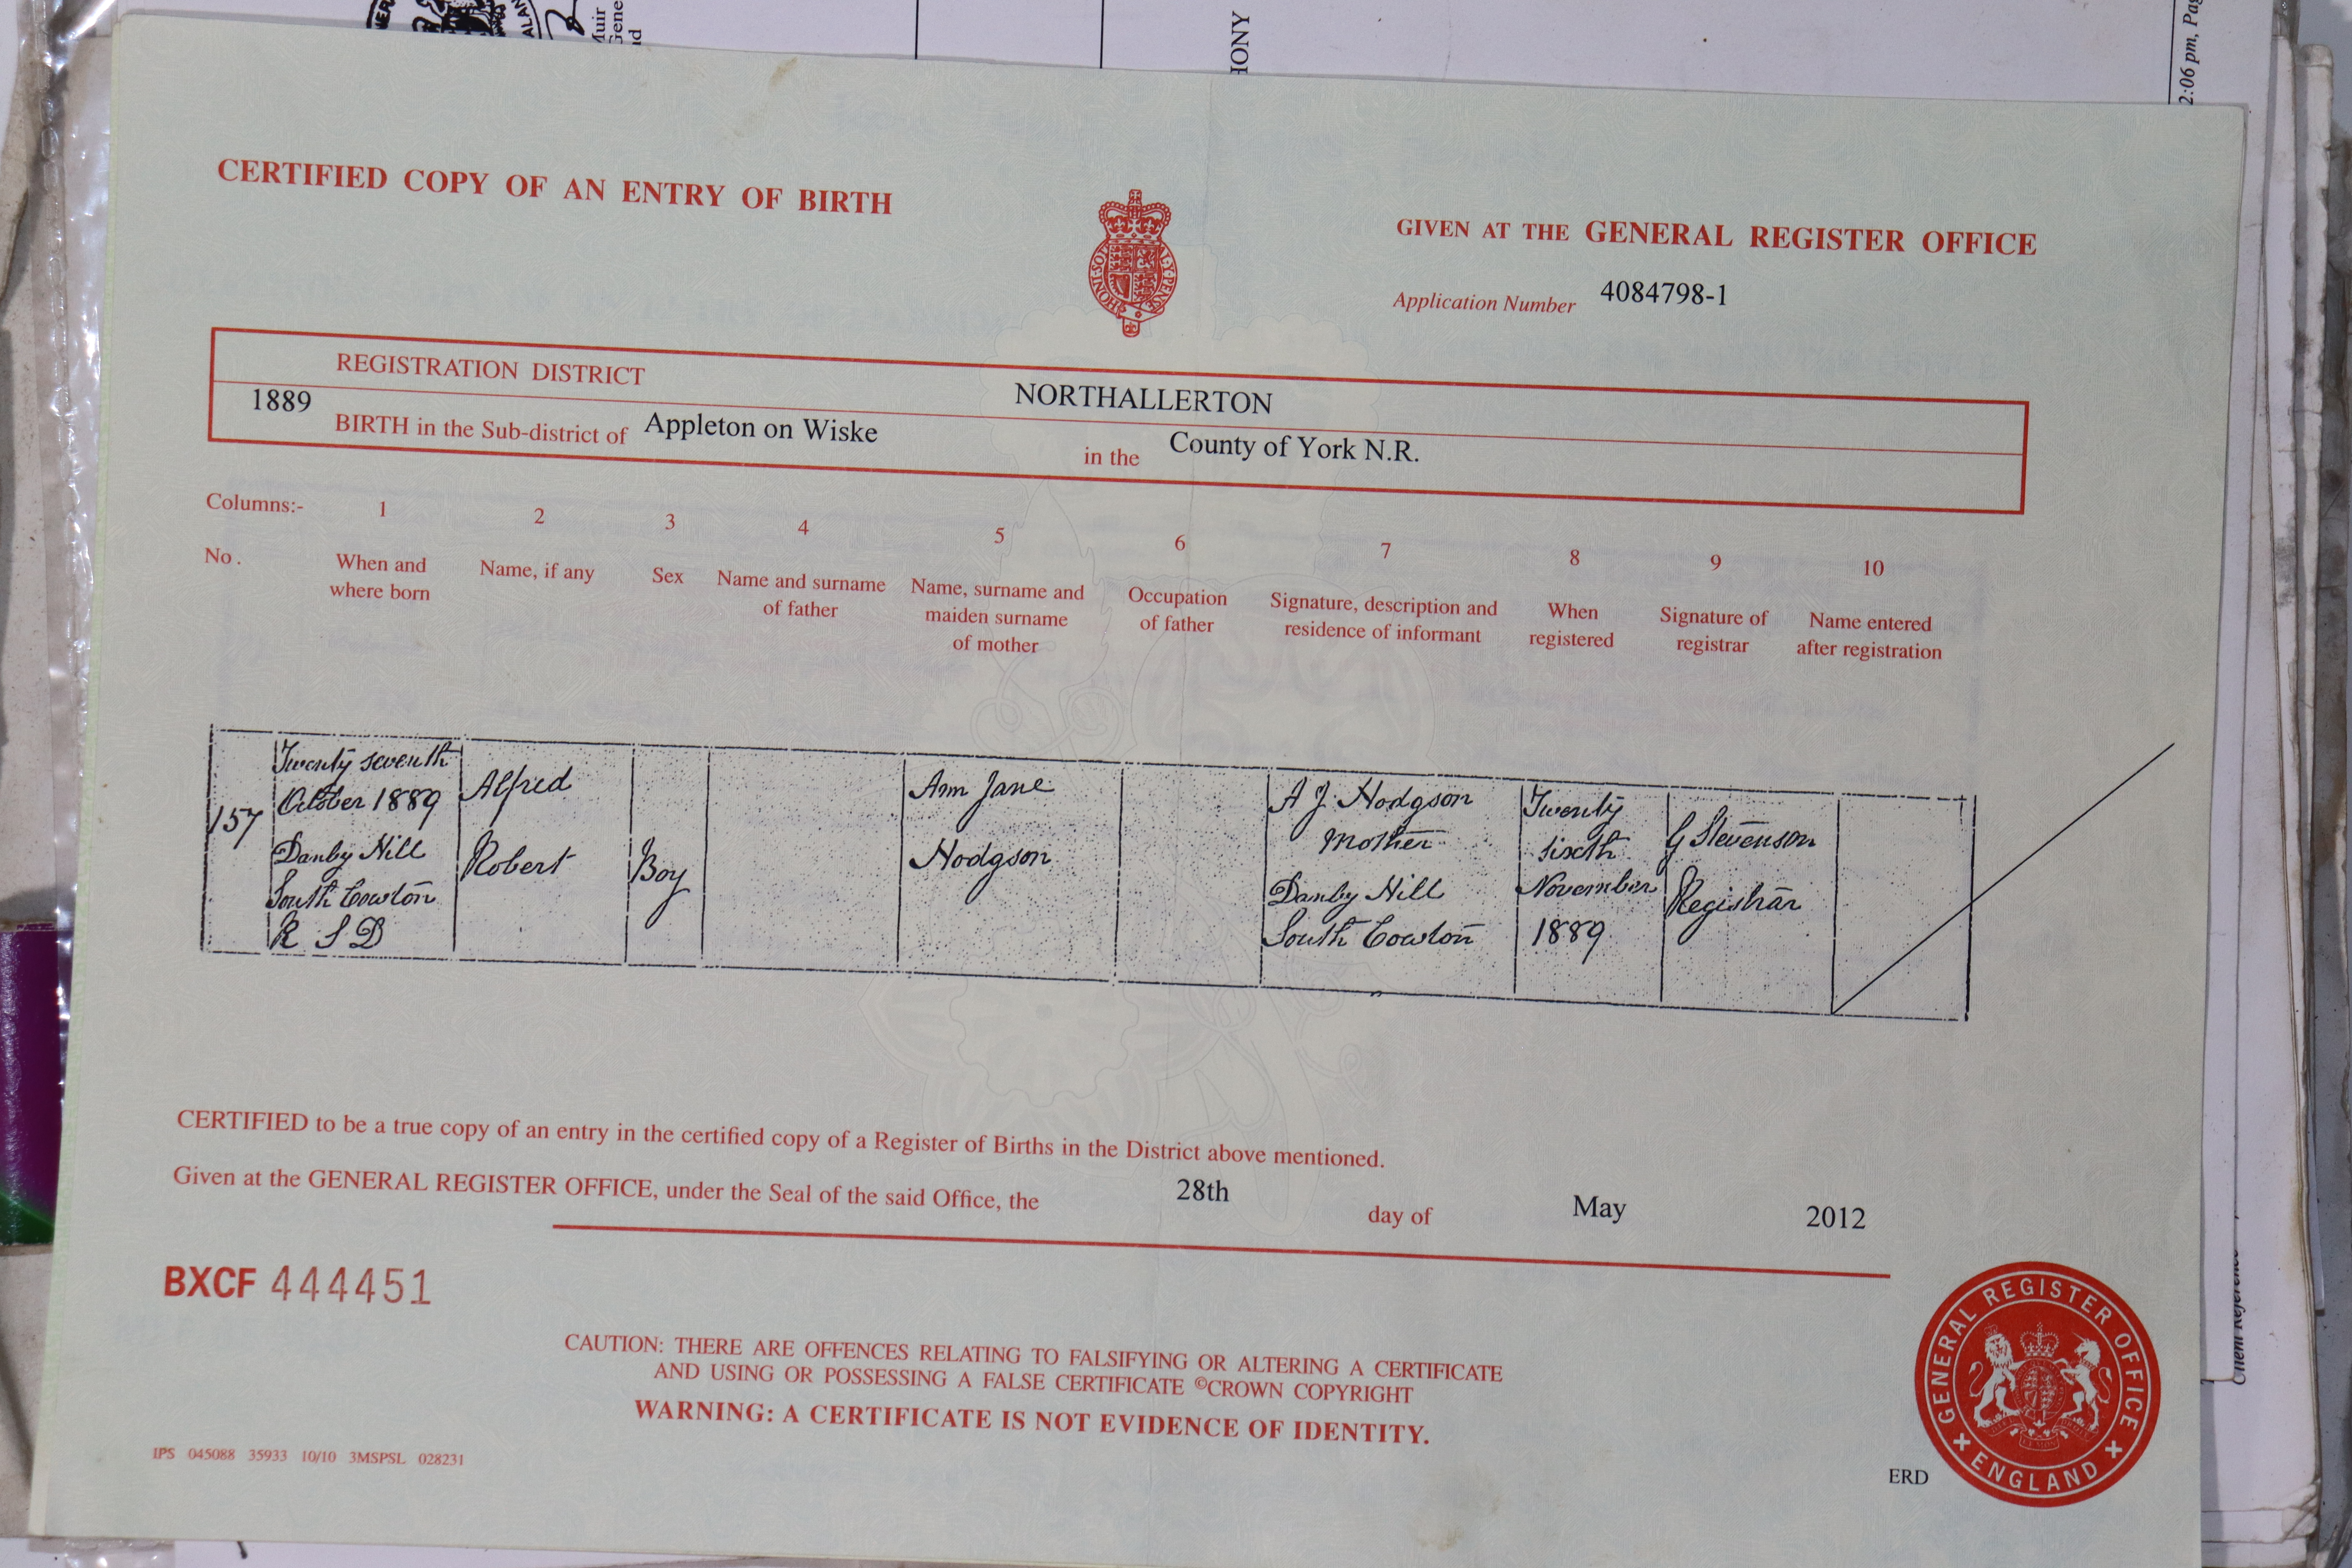 Muir
Gene
HONY
2:06 pm, Pag
CERTIFIED COPY OF AN ENTRY OF BIRTH
HONI SOI
Y PENSE
GIVEN AT THE GENERAL REGISTER OFFICE
Application Number 4084798-1
REGISTRATION DISTRICT NORTHALLERTON
1889 BIRTH in the Sub-district of Appleton on Wiske in the County of York N.R.
Columns:- 1 2 3 4 5 6 7 8 9 10
No. When and where born Name, if any Sex Name and surname of father Name, surname and maiden surname of mother Occupation of father Signature, description and residence of informant When registered Signature of registrar Name entered after registration
157
Twenty seventh
October 1889
Danby Hill
South Cowton
R S D
Alfred
Robert
Boy
Ann Jane
Hodgson
A J. Hodgson
Mother
Danby Hill
South Cowton
Twenty
sixth
November
1889
G Stevenson
Registrar
CERTIFIED to be a true copy of an entry in the certified copy of a Register of Births in the District above mentioned.
Given at the GENERAL REGISTER OFFICE, under the Seal of the said Office, the 28th day of May 2012
BXCF 444451
CAUTION: THERE ARE OFFENCES RELATING TO FALSIFYING OR ALTERING A CERTIFICATE
AND USING OR POSSESSING A FALSE CERTIFICATE ©CROWN COPYRIGHT
WARNING: A CERTIFICATE IS NOT EVIDENCE OF IDENTITY.
IPS 045088 35933 10/10 3MSPSL 028231
ERD
GENERAL REGISTER OFFICE
ENGLAND